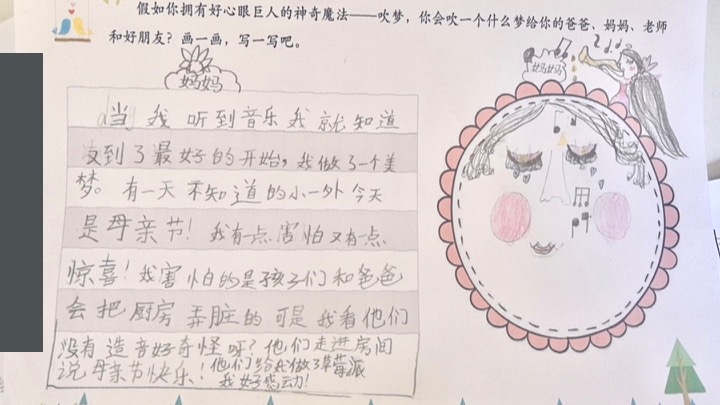 假如你拥有好心眼巨人的神奇魔法——吹梦，你会吹一个什么梦给你的爸爸、妈妈、老师
和好朋友？画一画，写一写吧。
妈妈
妈妈
当我听到音乐我就知道
到了最好的开始，我做了一个美
梦。有一天不知道的小一外今天
是母亲节！我有一点害怕又有一点
惊喜！我害怕的是孩子们和爸爸
会把厨房弄脏的可是我看他们
没有造音好奇怪呀？他们走进房间
说母亲节快乐！他们给我做了草莓派
我好感动！